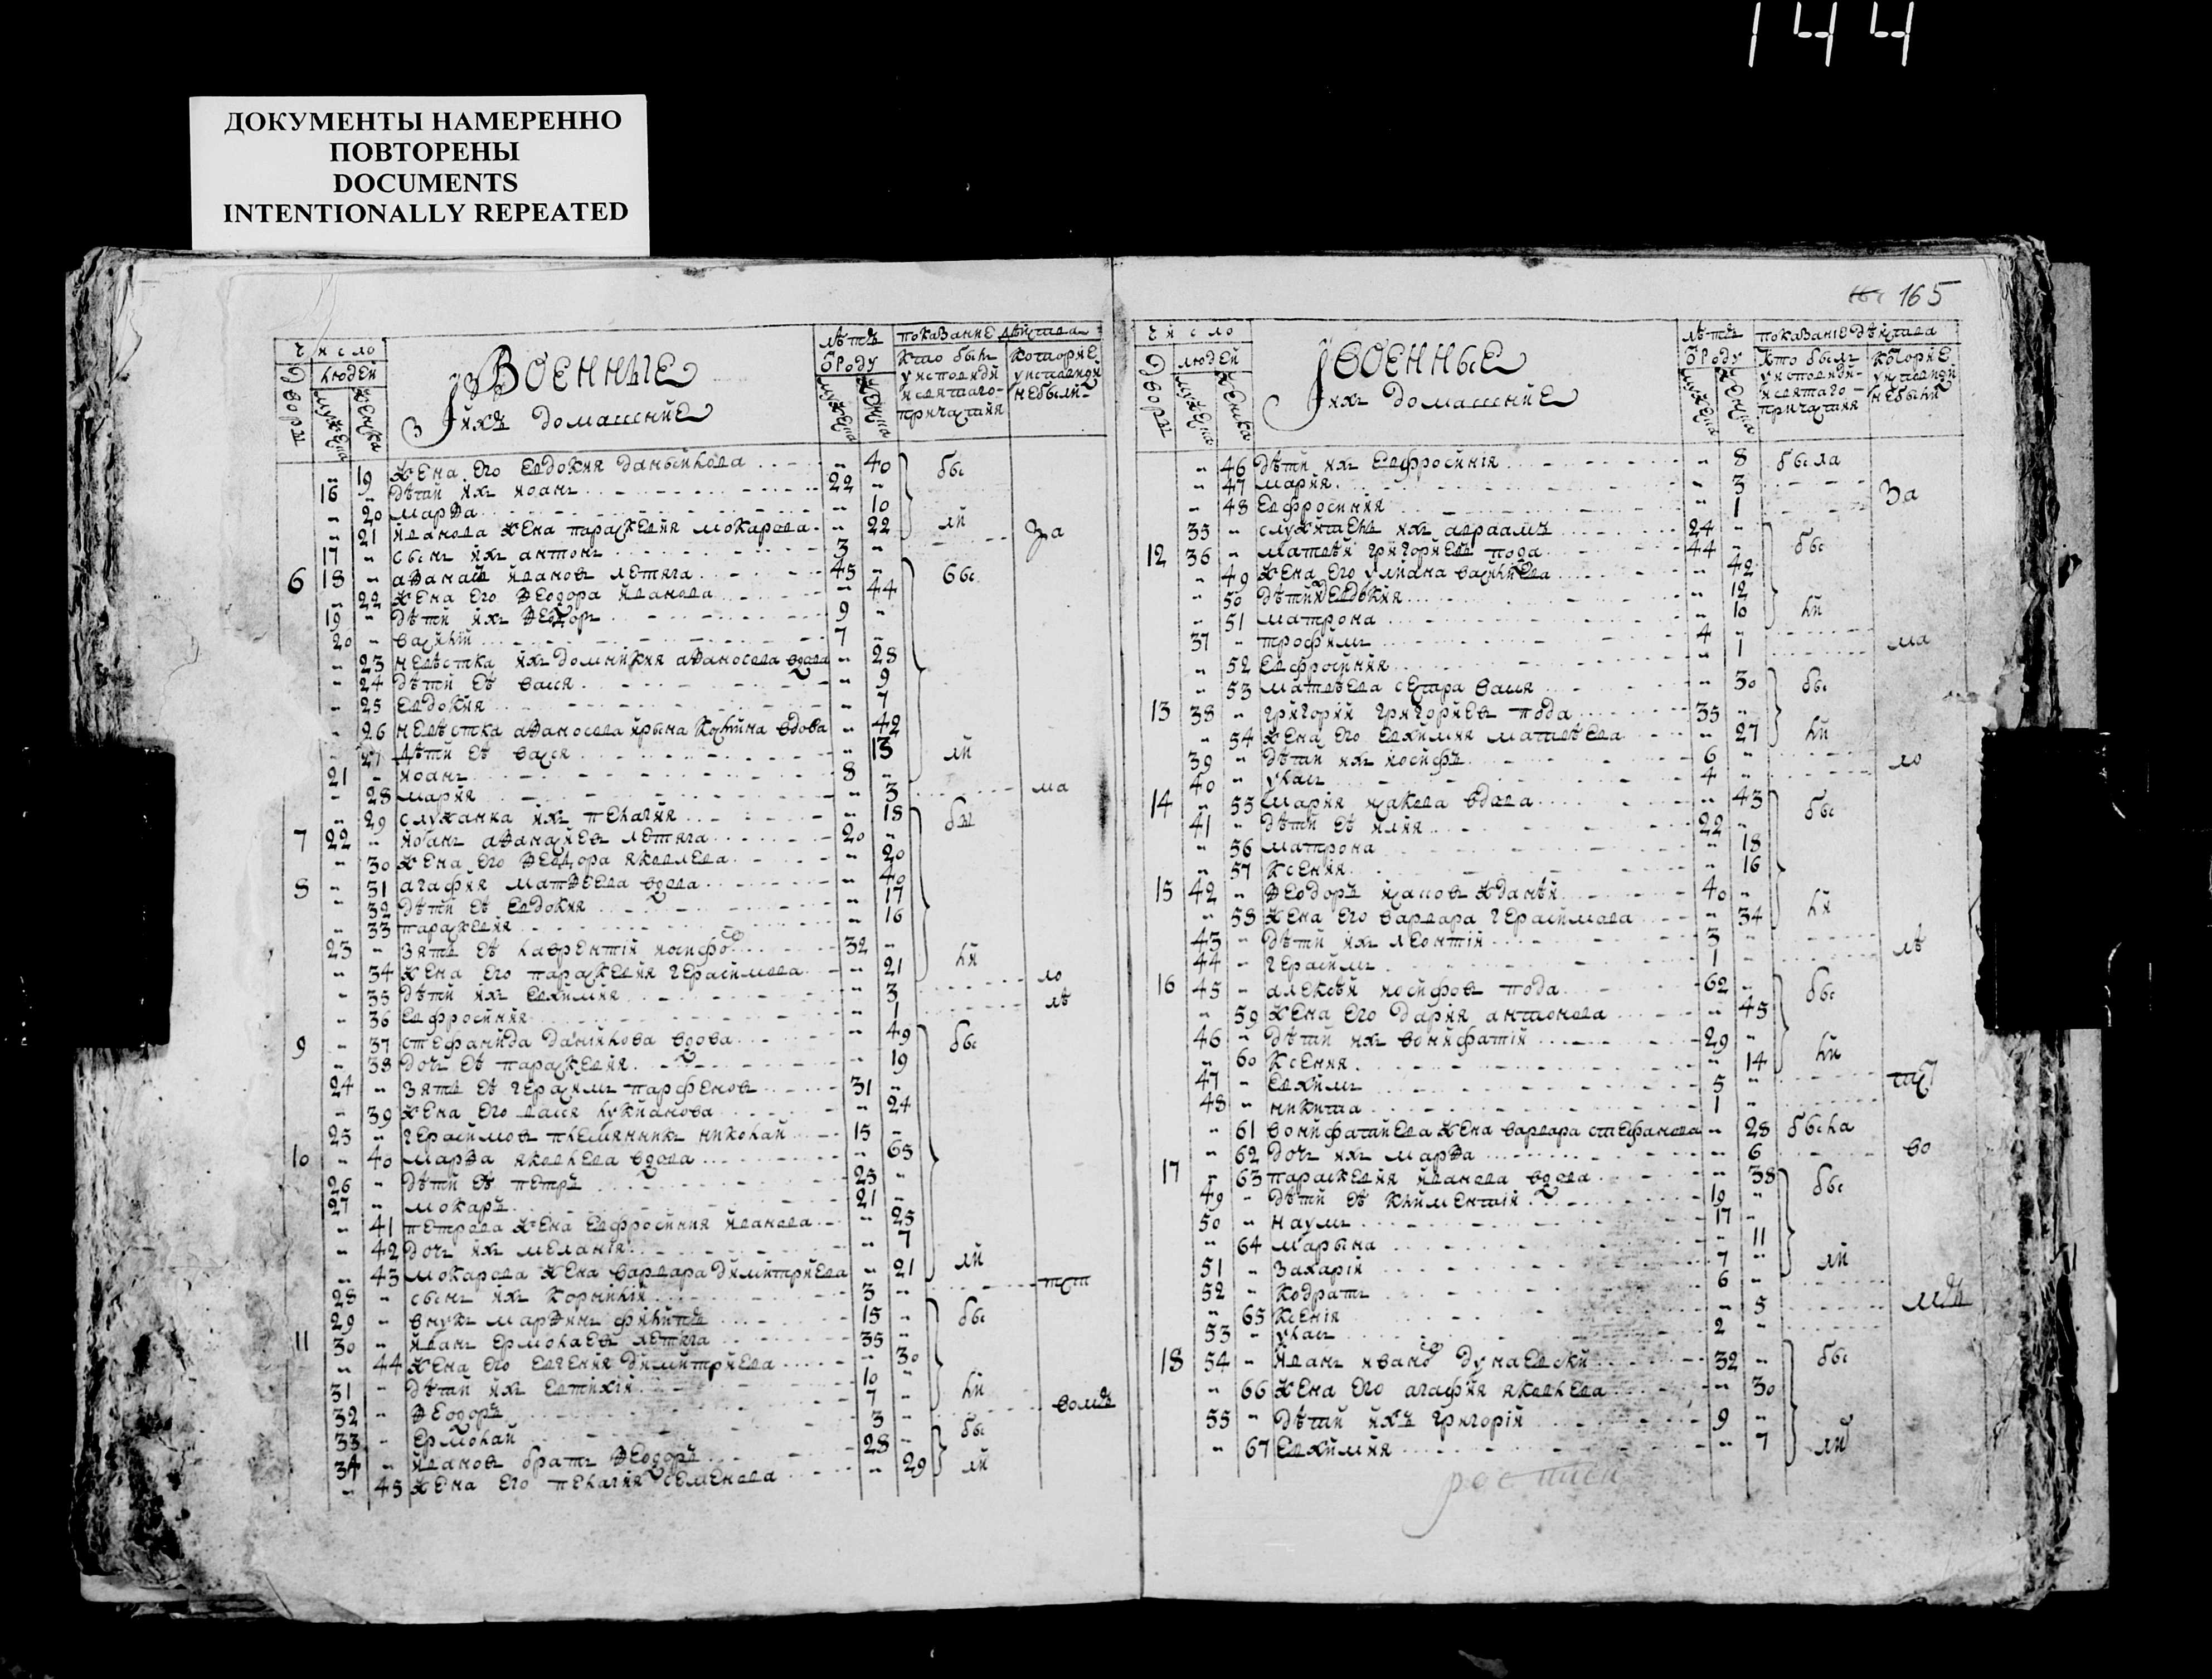 144
ДОКУМЕНТЫ НАМЕРЕННО
ПОВТОРЕНЫ
DOCUMENTS
INTENTIONALLY REPEATED
165
число лѣтъ показание дѣйства
людей ѿ роду кто былъ которие
дворы мужеска женска Военные и ихъ домашние мужеска женска у исповиди и святаго причастия у исповиди небыли
- 19 жена его евдокия даныилова - 40 бы
16 - дѣти ихъ иоанъ 22 -
- 20 марѳа - 10
- 21 иванова жена параскевия мокарова - 22 ли за
17 - сынъ ихъ антонъ 3 -
6 18 - аѳанасъ ивановъ летяга 45 - бы
- 22 жена его ѳеодора иванова - 44
19 - дѣти ихъ ѳеодоръ 9 -
20 - василий 7 -
- 23 невѣстка ихъ домникия аѳаносова вдова - 28
- 24 дѣти еѣ вася - 9
- 25 евдокия - 7
- 26 невѣстка аѳаносова ирына вдова - 42
- 27 дѣти еѣ вася - 13 ли
21 - иоанъ 8 -
- 28 мария - 3 ма
- 29 служанка ихъ пелагия - 18 бы
7 22 - иоанъ аѳанасиевъ летяга 20 -
- 30 жена его ѳеодора яковлева - 20
8 - 31 агафия матѳеева вдова - 40
- 32 дѣти еѣ евдокия - 17
- 33 параскевия - 16
23 - зять еѣ лаврентий иосифо 32 -
- 34 жена его параскевия герасимова - 21 ли
- 35 дѣти ихъ евхимия - 3 ло
- 36 евфросиния - 1 лѣ
9 - 37 стефанида даниилова вдова - 49 бы
- 38 дочъ еѣ параскевия - 19
24 - зять еѣ герасимъ парфеновъ 31 -
- 39 жена его вася лукианова - 24
25 - герасимовъ племянникъ николай 15 -
10 - 40 марѳа яковлева вдова - 65
26 - дѣти еѣ петръ 25 -
27 - мокаръ 21 -
- 41 петрова жена евфросиния иванова - 25
- 42 дочъ ихъ меланiя - 7
- 43 мокарова жена варвара димитриева - 21 ли
28 - сынъ ихъ корнилий 3 -
29 - внукъ марѳинъ филипъ 15 - бы
11 30 - иванъ ермолаевъ летяга 35 -
- 44 жена его евгения димитриева - 30
31 - дѣти ихъ евтихiй 10 -
32 - ѳеодоръ 7 - ли
33 - ермолай 3 -
34 - ивановъ братъ ѳеодоръ 28 - бы
- 45 жена его пелагия семенова - 29 ли
число лѣтъ показанiе дѣйства
людей ѿ роду кто былъ которие
дворы мужеска женска Военные и ихъ домашние мужеска женска у исповиди и святаго причастия у исповиди небыли
- 46 дѣти ихъ евфросинiя - 8 была
- 47 мария - 3
- 48 евфросиния - 1 за
35 - служитель ихъ авраамъ 24 -
12 36 - матвѣй григориевъ пода 44 - бы
- 49 жена его улиана василиева - 42
- 50 дѣти ихъ евдокия - 12
- 51 матрона - 10 ли
37 - трофимъ 4 -
- 52 евфросиния - 1 ма
- 53 матвѣева сестра вася - 30 бы
13 38 - григорий григориевъ пода 35 -
- 54 жена его евхимия матвѣева - 27 ли
39 - дѣти ихъ иосифъ 6 -
40 - укасъ 4 - ло
14 - 55 мария исакова вдова - 43 бы
41 - дѣти еѣ илия 22 -
- 56 матрона - 18
- 57 ксения - 16
15 42 - ѳеодоръ жданѣй 40 -
- 58 жена его варвара герасимова - 34 ли
43 - дѣти ихъ леонтiй 3 -
44 - герасимъ 1 - лѣ
16 45 - алексѣй иосифовъ пода 62 - бы
- 59 жена его дария антонова - 45
46 - дѣти ихъ вонифатiй 29 -
- 60 ксения - 14 ли
47 - евхимъ 5 -
48 - никита 1 -
- 61 вонифатиева жена варвара стефанова - 28 была
- 62 дочъ ихъ марѳа - 6 во
17 - 63 параскевия иванова вдова - 38 бы
49 - дѣти еѣ климентiй 19 -
50 - наумъ 17 -
- 64 марына - 11
51 - захарiй 7 - ли
52 - кодратъ 6 -
- 65 ксенiя - 5
53 - укасъ 2 -
18 54 - иванъ ивано дунаевски 32 - бы
- 66 жена его агафия яковлева - 30
55 - дѣти ихъ григорiй 9 -
- 67 евхимия - 7 ли
росписи